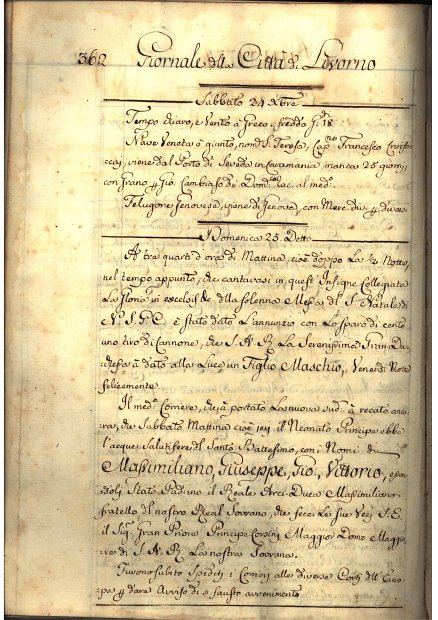 362 Giornale della Città di Livorno
Sabbato 24 Xbre
Tempo chiaro, e vento à Greco, freddo Gdi 18
Nave Veneta à quinto, nomta S. Teresa, Capno Francesco
viene dal Porto di in Caramania, manca 26 giorni
con Grano p Gio. Cambiaso di Domco Sac. al medo
genovese, viene di Genova, con Merc. div. p diversi
Domenica 25 Detto
A tre quarti d'ora di Mattina, cioè doppo La Notte,
nel tempo appunto, che cantavasi in quest' Insigne Collegiata
La Gloria in excelsis &c. della solenne Messa del S. Natale di
N. S. G. C. è stato dato L'annunzio con Lo sparo di cento
uno tiro di Cannone, che S. A. R. La Serenissima Gran Du-
chessa à dato alla Luce un Figlio Maschio, Venerdì Notte
felicemente
Il medo Corriere, che à portato La nuova sudta à recato anco-
ra, che Sabbato Mattina cioè ieri il Neonato Principe ebbe
l'acque Salutifere del Santo Battesimo, con i Nomi di
Massimiliano, Giuseppe, Gio, Vittorio, essen-
doli Stato Padrino il Reale Arci-Duca Massimiliano
fratello del nostro Real Sovrano, che fece Le sue Veci S. E.
il Sigr Gran Priore Principe Corsini Maggior Domo Maggio-
re di S. A. R. La nostra Sovrana.
Furono subito Spediti i Corrieri alle diverse Corti dell' Euro-
pa p dare Avviso di sì fausto avvenimento